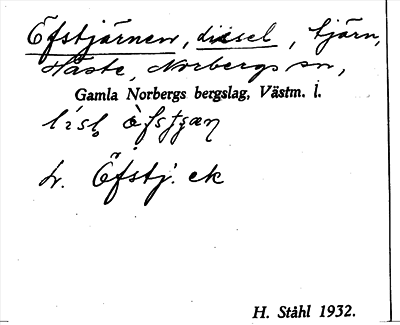 Öfstjärnen, diesel, tjärn,
Häste, Norbergs sn,
Gamla Norbergs bergslag, Västm. l.
Öfstj. ek
H. Ståhl 1932.